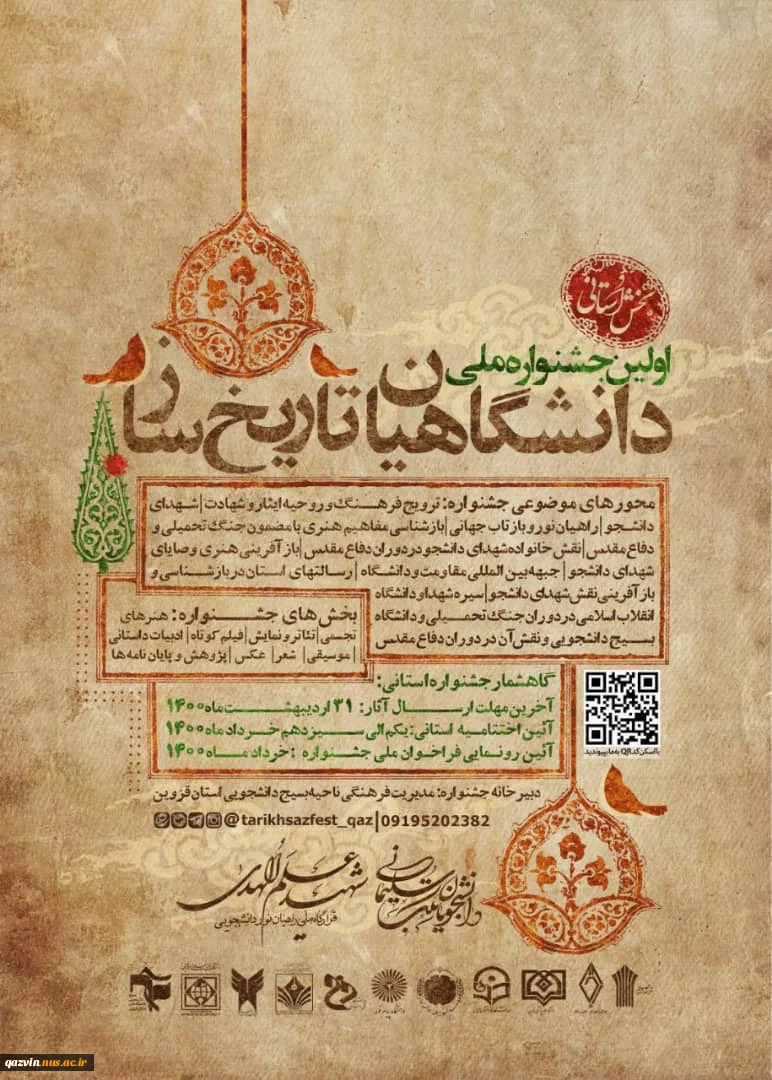 بخش استانی
اولین جشنواره ملی
دانشگاهیان تاریخ ساز
محورهای موضوعی جشنواره: ترویج فرهنگ و روحیه ایثار و شهادت | شهدای
دانشجو | راهیان نور و بازتاب جهانی | بازشناسی مفاهیم هنری با مضمون جنگ تحمیلی و
دفاع مقدس | نقش خانواده شهدای دانشجو در دوران دفاع مقدس | بازآفرینی هنری وصایای
شهدای دانشجو | جبهه بین المللی مقاومت و دانشگاه | رسالتهای استان در بازشناسی و
بازآفرینی نقش شهدای دانشجو | سیره شهدا و دانشگاه
انقلاب اسلامی در دوران جنگ تحمیلی و دانشگاه
بسیج دانشجویی و نقش آن در دوران دفاع مقدس
بخش های جشنواره: هنرهای
تجسمی | تئاتر و نمایش | فیلم کوتاه | ادبیات داستانی
| موسیقی | شعر | عکس | پژوهش و پایان نامه ها
گاهشمار جشنواره استانی:
آخرین مهلت ارسال آثار: ۳۱ اردیبهشت ماه ۱۴۰۰
آئین اختتامیه استانی: یکم الی سیزدهم خرداد ماه ۱۴۰۰
آئین رونمایی فراخوان ملی جشنواره : خرداد ماه ۱۴۰۰
با اسکن کد QR به ما بپیوندید
دبیرخانه جشنواره: مدیریت فرهنگی ناحیه بسیج دانشجویی استان قزوین
@tarikhsazfest_qaz|09195202382
دانشجویان مکتب سلیمانی
شهید علم الهدی
قرارگاه ملی راهیان نور دانشجویی
qazvin.nus.ac.ir